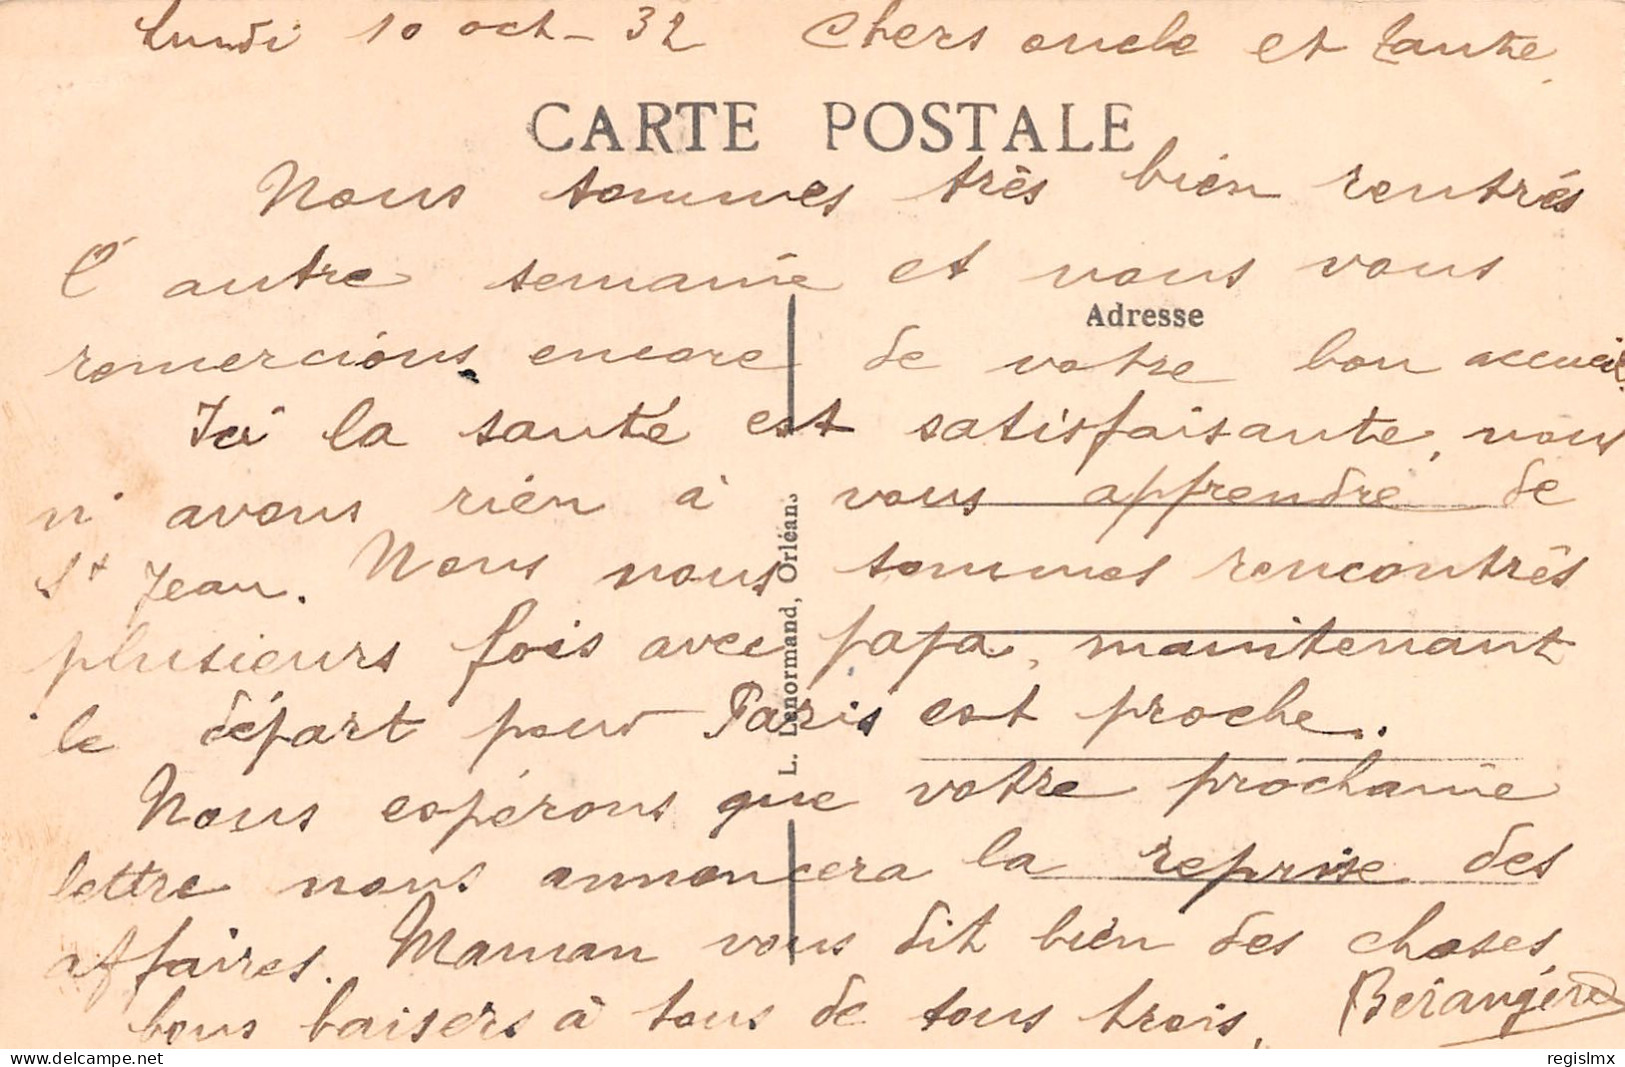 Lundi 10 oct - 32 Chers oncle et tante,
CARTE POSTALE
Nous sommes très bien rentrés
l'autre semaine et nous vous
Adresse
remercions encore de votre bon accueil.
Ici la santé est satisfaisante, nous
n'avons rien à vous apprendre de
St Jean. Nous nous sommes rencontrés
plusieurs fois avec papa, maintenant
le départ pour Paris est proche.
Nous espérons que votre prochaine
lettre nous annoncera la reprise des
affaires. Maman vous dit bien des choses,
bons baisers à tous de tous trois, Berangère
L. Lenormand, Orléans
regislmx